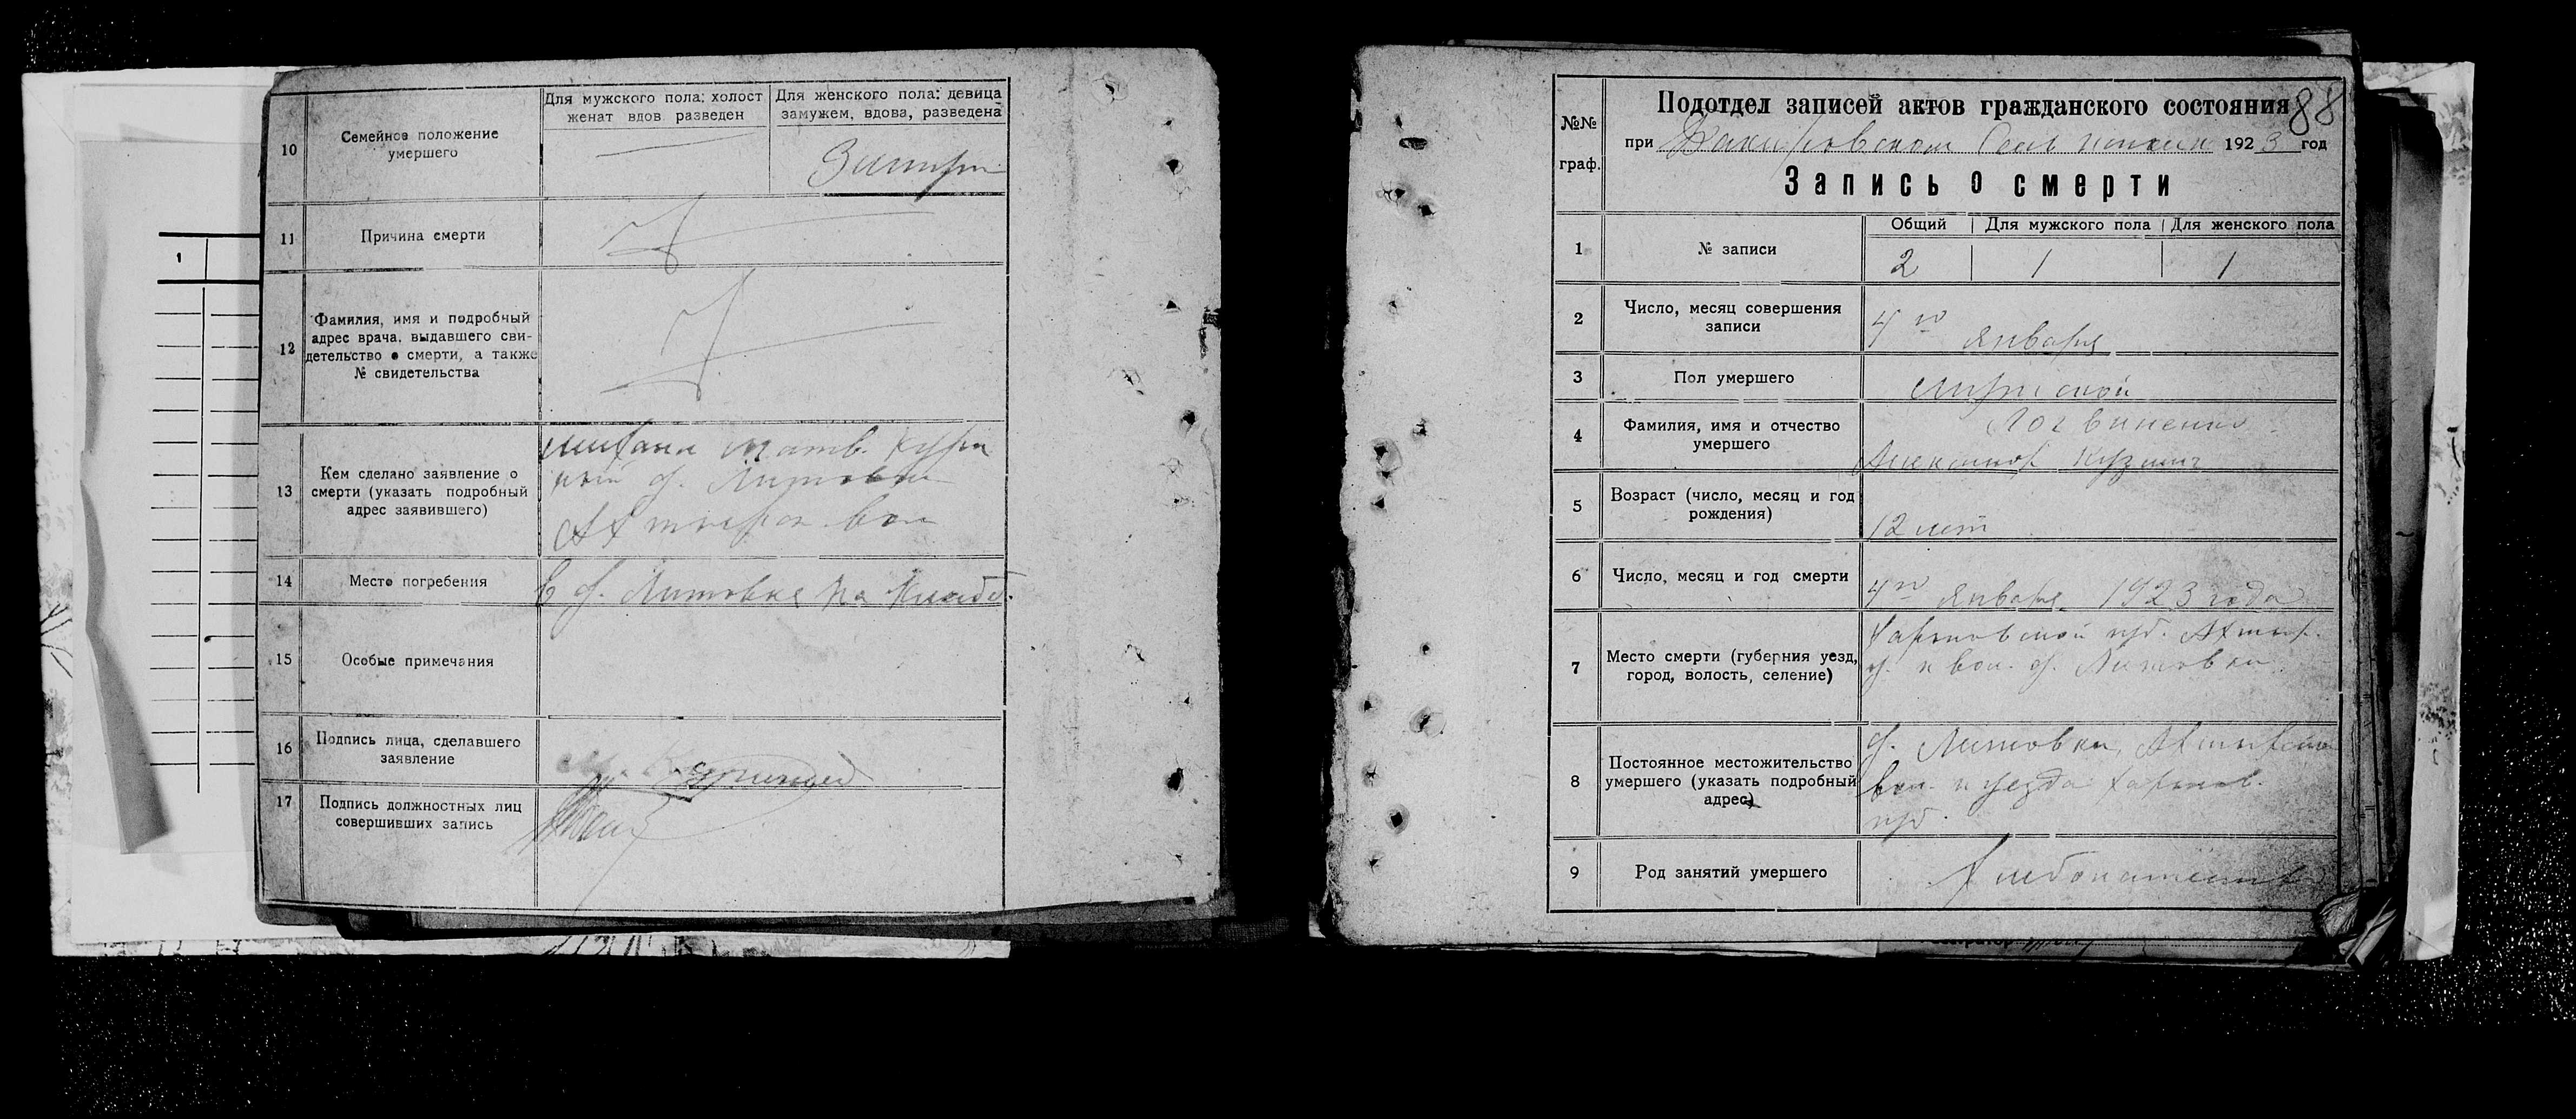 10
Семейное положение
умершего
Для мужского пола: холост
женат вдов разведен
Для женского пола: девица
замужем, вдова, разведена
11
Причина смерти
12
Фамилия, имя и подробный
адрес врача, выдавшего сви-
детельство о смерти, а также
№ свидетельства
13
Кем сделано заявление о
смерти (указать подробный
адрес заявившего)
14
Место погребения
в д. Литовке на
15
Особые примечания
16
Подпись лица, сделавшего
заявление
17
Подпись должностных лиц
совершивших запись
1
88
№№
граф.
Подотдел записей актов гражданского состояния
при 1923 год
Запись о смерти
1
№ записи
Общий Для мужского пола Для женского пола
2 1 1
2
Число, месяц совершения
записи
4го Января
3
Пол умершего
мужской
4
Фамилия, имя и отчество
умершего
Логвиненко
Александр Кузьмич
5
Возраст (число, месяц и год
рождения)
12 лет
6
Число, месяц и год смерти
4го Января 1923 года
7
Место смерти (губерния уезд,
город, волость, селение)
Харьковской губ. Ахтыр.
у. и вол. д. Литовка
8
Постоянное местожительство
умершего (указать подробный
адрес)
д. Литовка, Ахтырской
вол. и уезда Харьков.
губ.
9
Род занятий умершего
Хлебопашество